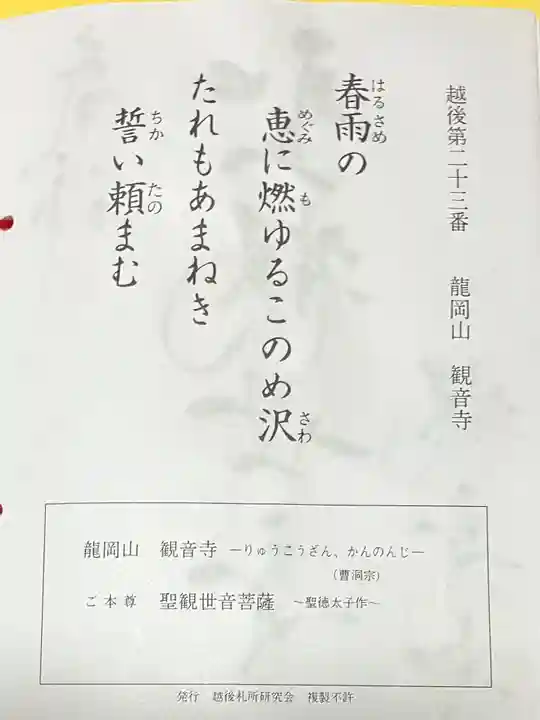 越後第二十三番　龍岡山　観音寺
春雨の
はるさめ
恵に燃ゆるこのめ沢
めぐみ　も　さわ
たれもあまねき
誓い頼まむ
ちか　たの
龍岡山　観音寺　―りゅうこうざん、かんのんじ―
（曹洞宗）
ご本尊　聖観世音菩薩　～聖徳太子作～
発行　越後札所研究会　複製不許